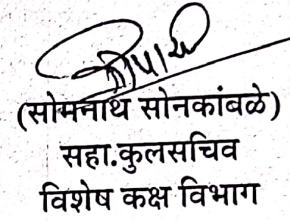 (सोमनाथ सोनकांबळे)
सहा.कुलसचिव
विशेष कक्ष विभाग